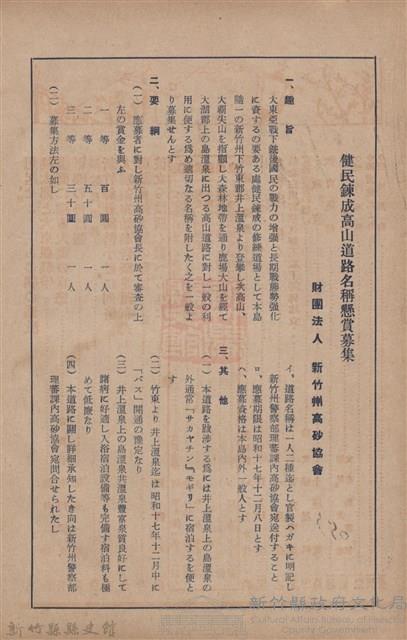 健民鍊成高山道路名稱懸賞募集
財團法人 新竹州高砂協會
一、趣旨
大東亞戰下銃後國民の戰力の增强と長期戰態勢强化
に資するの要ある處健民鍊成の修鍊道場として本島
隨一の新竹州下竹東郡井上溫泉より登攀し次高山、
大霸尖山を指顧し大森林地帶を通り鹿場大山を經て
大湖郡上の島溫泉に出つる高山道路に對し一般の利
用に便する爲め適切なる名稱を附したく之を一般よ
り募集せんとす
二、要綱
(一) 應募者に對し新竹州高砂協會長に於て審查の上
左の賞金を與ふ
一等 百圓 一人
二等 五十圓 一人
三等 三十圓 一人
(二) 募集方法左の如し
イ、道路名稱は一人二種迄とし官製ハガキに明記し
新竹州警察部理蕃課內高砂協會宛送付すること
ロ、應募期限は昭和十七年十二月八日とす
ハ、應募資格は本島內外一般人とす
三、其他
(一) 本道路を跋涉する爲には井上溫泉上の島溫泉の
外通常「サカヤチン」「モギリ」に宿泊するを便と
す
(二) 竹東より井上溫泉迄は昭和十七年十二月中に
「バス」開通の豫定なり
(三) 井上溫泉上の島溫泉共溫泉豐富泉質良好にして
諸病に好適し入浴宿泊設備等も完備す宿泊料も極
めて低廉なり
(四) 本道路に關し詳細承知したき向は新竹州警察部
理蕃課內高砂協會宛問合せられたし
新竹縣縣史館
新竹縣政府文化局
Cultural Affairs Bureau of Hsinchu
County Government